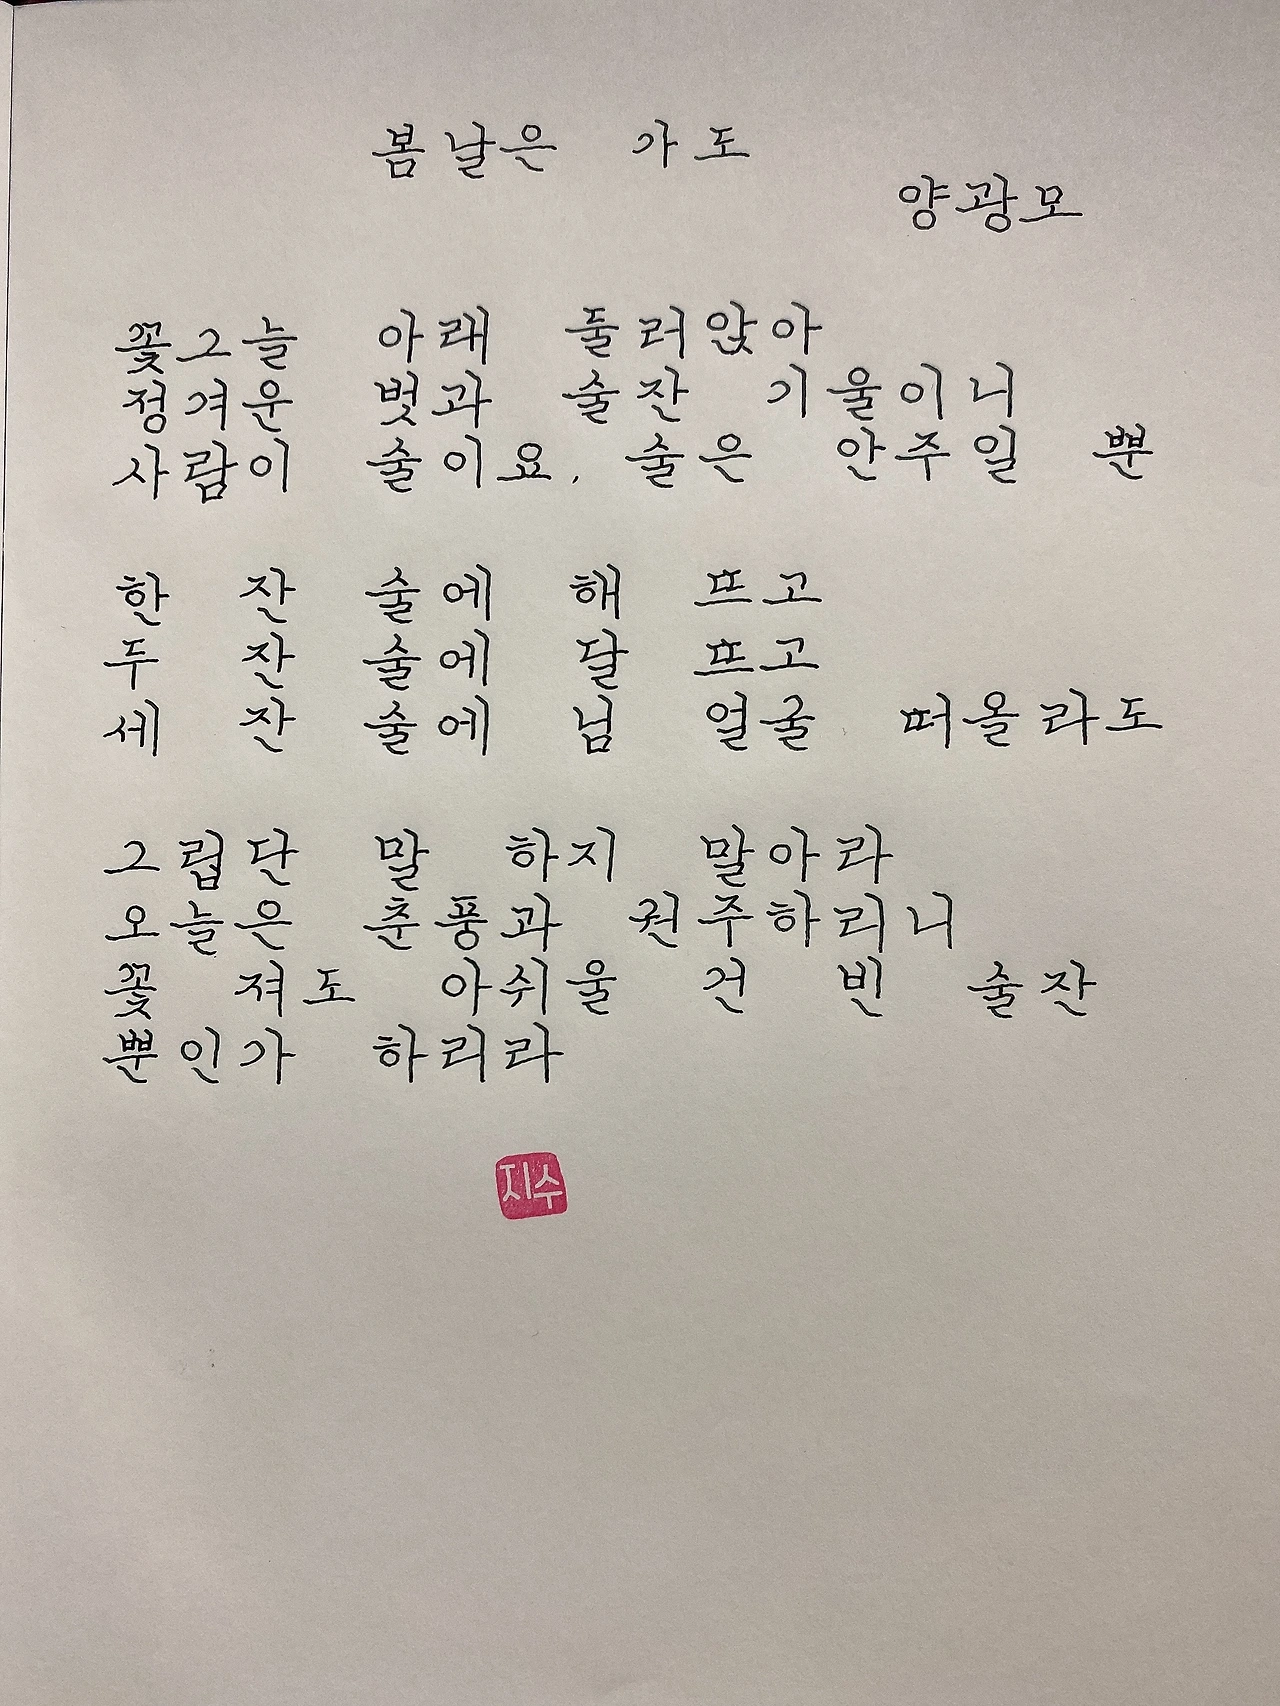 봄날은 가도
양광모
꽃그늘 아래 둘러앉아
정겨운 벗과 술잔 기울이니
사람이 술이요, 술은 안주일 뿐
한 잔 술에 해 뜨고
두 잔 술에 달 뜨고
세 잔 술에 님 얼굴 떠올라도
그립단 말 하지 말아라
오늘은 춘풍과 권주하리니
꽃 져도 아쉬울 건 빈 술잔
뿐인가 하리라
지수